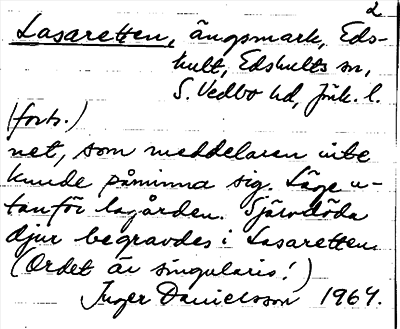 2
Lasaretten, ängsmark, Eds-
hult, Edshults sn,
S. Vedbo hd, Jönk. l.
(forts.)
net, som meddelaren inte
kunde påminna sig. Läge u-
tanför lagården. Självdöda
djur begravdes i Lasaretten
(Ordet är singularis!)
Inger Danielsson 1964.